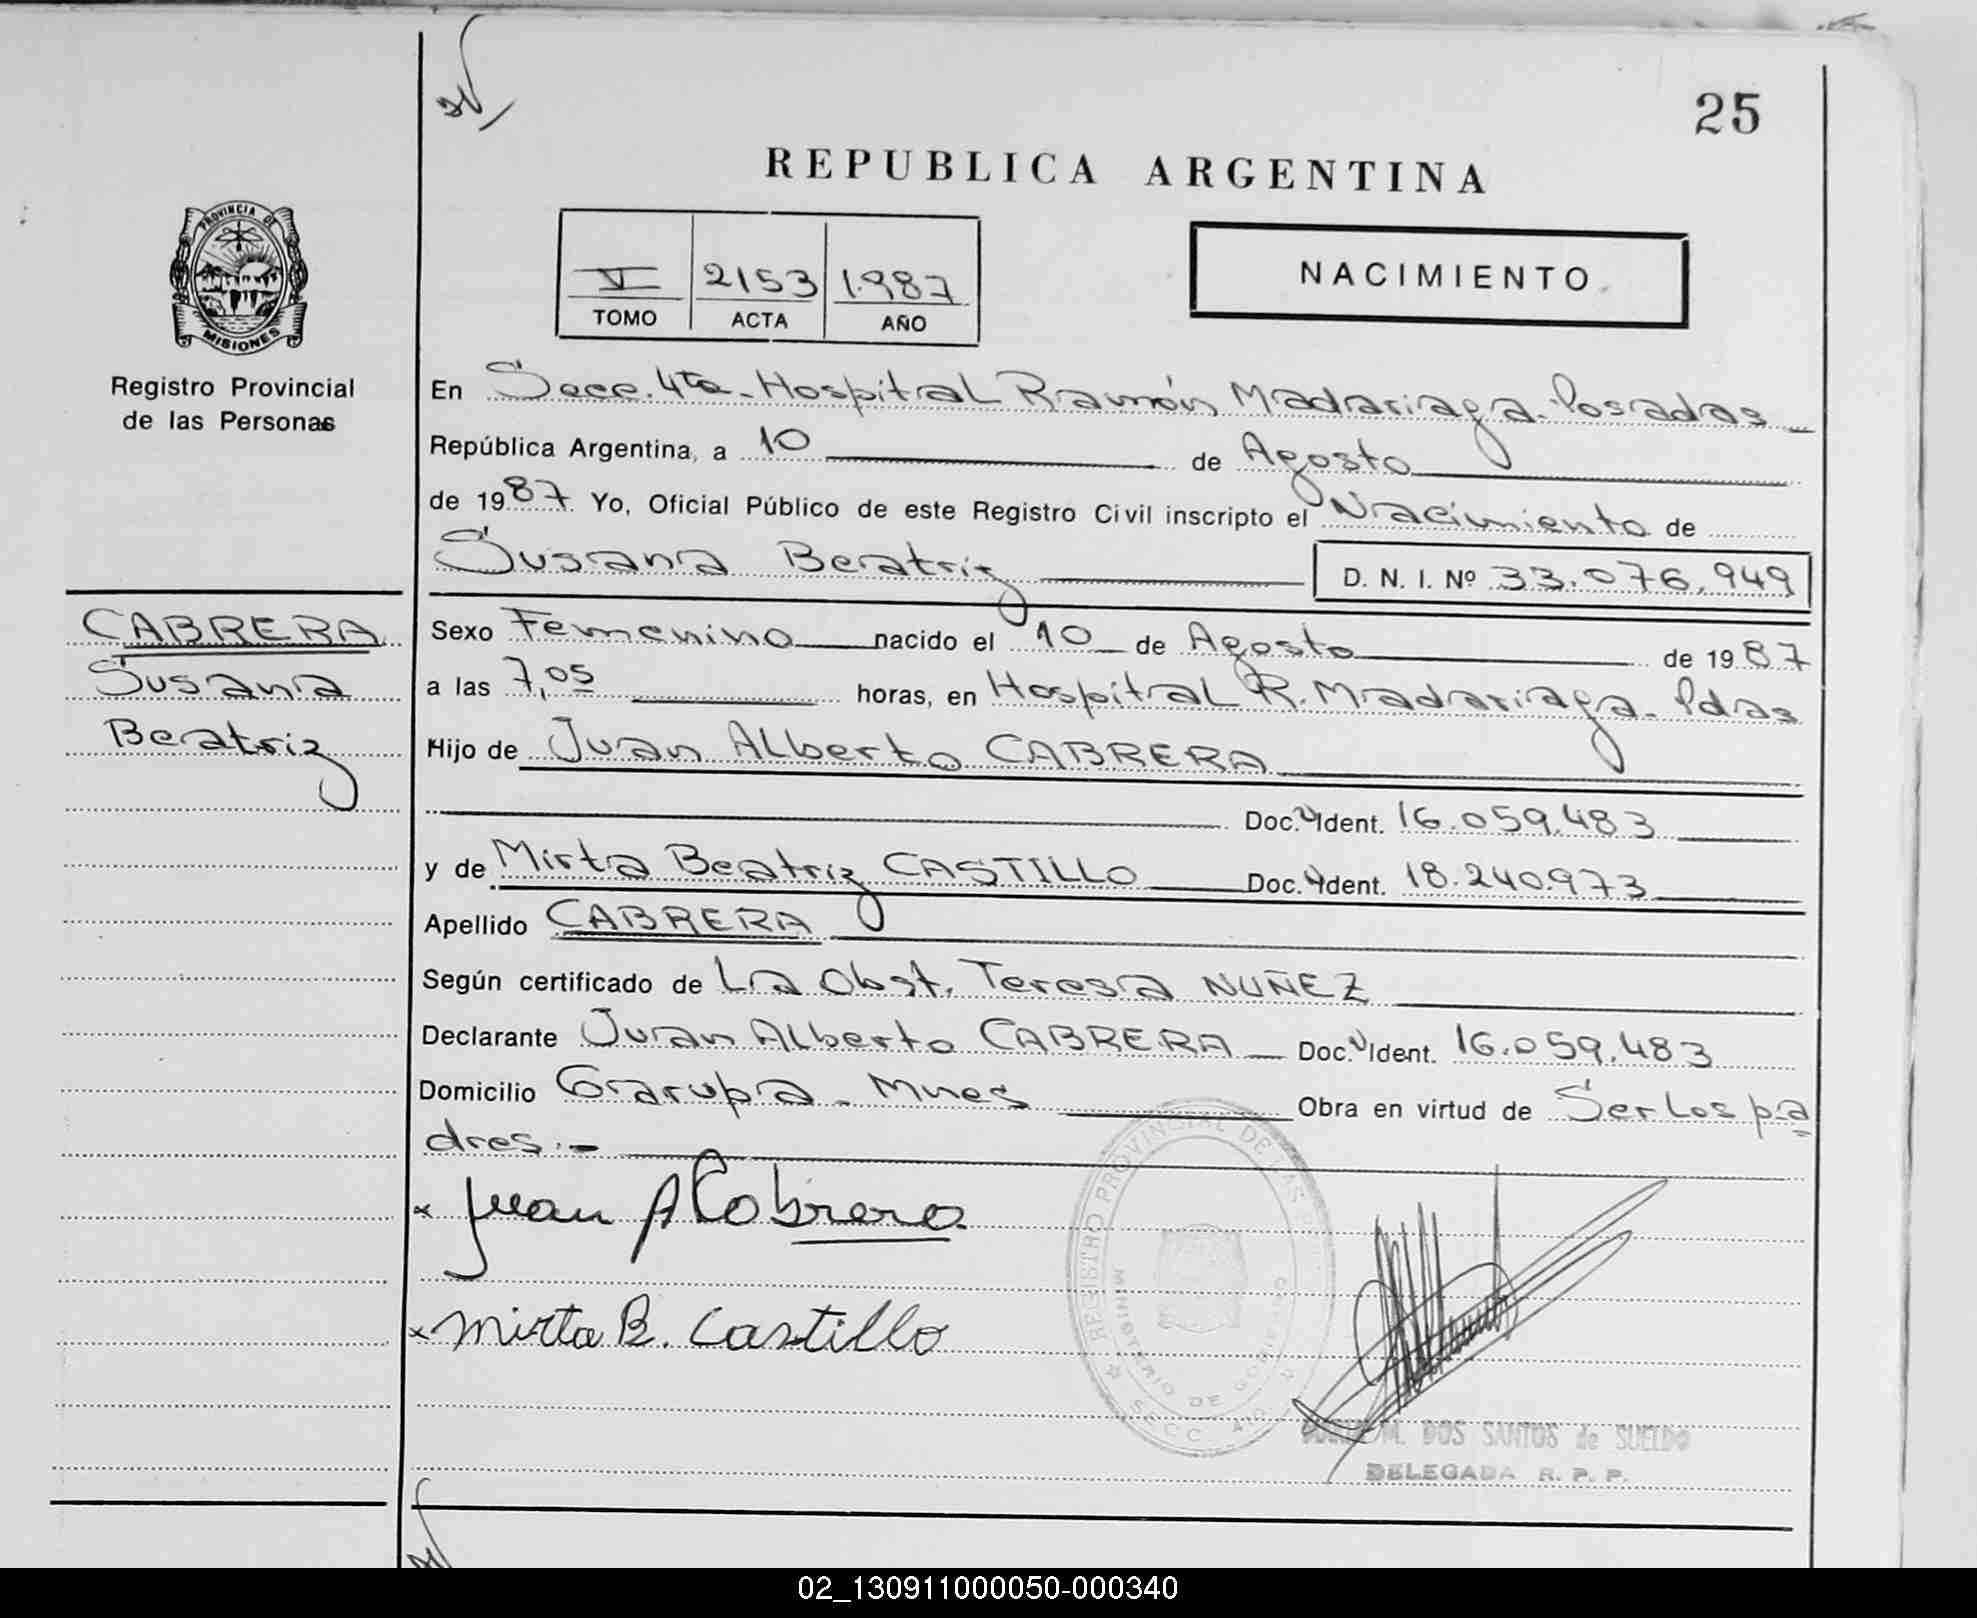 25
REPUBLICA ARGENTINA
V 2153 1.987
TOMO ACTA AÑO
NACIMIENTO
PROVINCIA DE
MISIONES
Registro Provincial
de las Personas
En Secc. 4ta. Hospital Ramón Madariaga. Posadas
República Argentina, a 10 de Agosto
de 1987 Yo, Oficial Público de este Registro Civil inscripto el Nacimiento de
Susana Beatriz D. N. I. Nº 33.076.949
CABRERA
Susana
Beatriz
Sexo Femenino nacido el 10 de Agosto de 1987
a las 7,05 horas, en Hospital R. Madariaga. Pdas
Hijo de Juan Alberto CABRERA
Doc. Ident. 16.059.483
y de Mirta Beatriz CASTILLO Doc. Ident. 18.240.973
Apellido CABRERA
Según certificado de La Obst. Teresa NUÑEZ
Declarante Juan Alberto CABRERA Doc. Ident. 16.059.483
Domicilio Garupa - Mnes Obra en virtud de Ser los pa
dres.-
x Juan A Cabrera
x Mirta B. Castillo
REGISTRO PROVINCIAL DE LAS
MINISTERIO DE GOBIERNO
SECC. 4
M. DOS SANTOS de SUELDO
DELEGADA R. P. P.
02_130911000050-000340